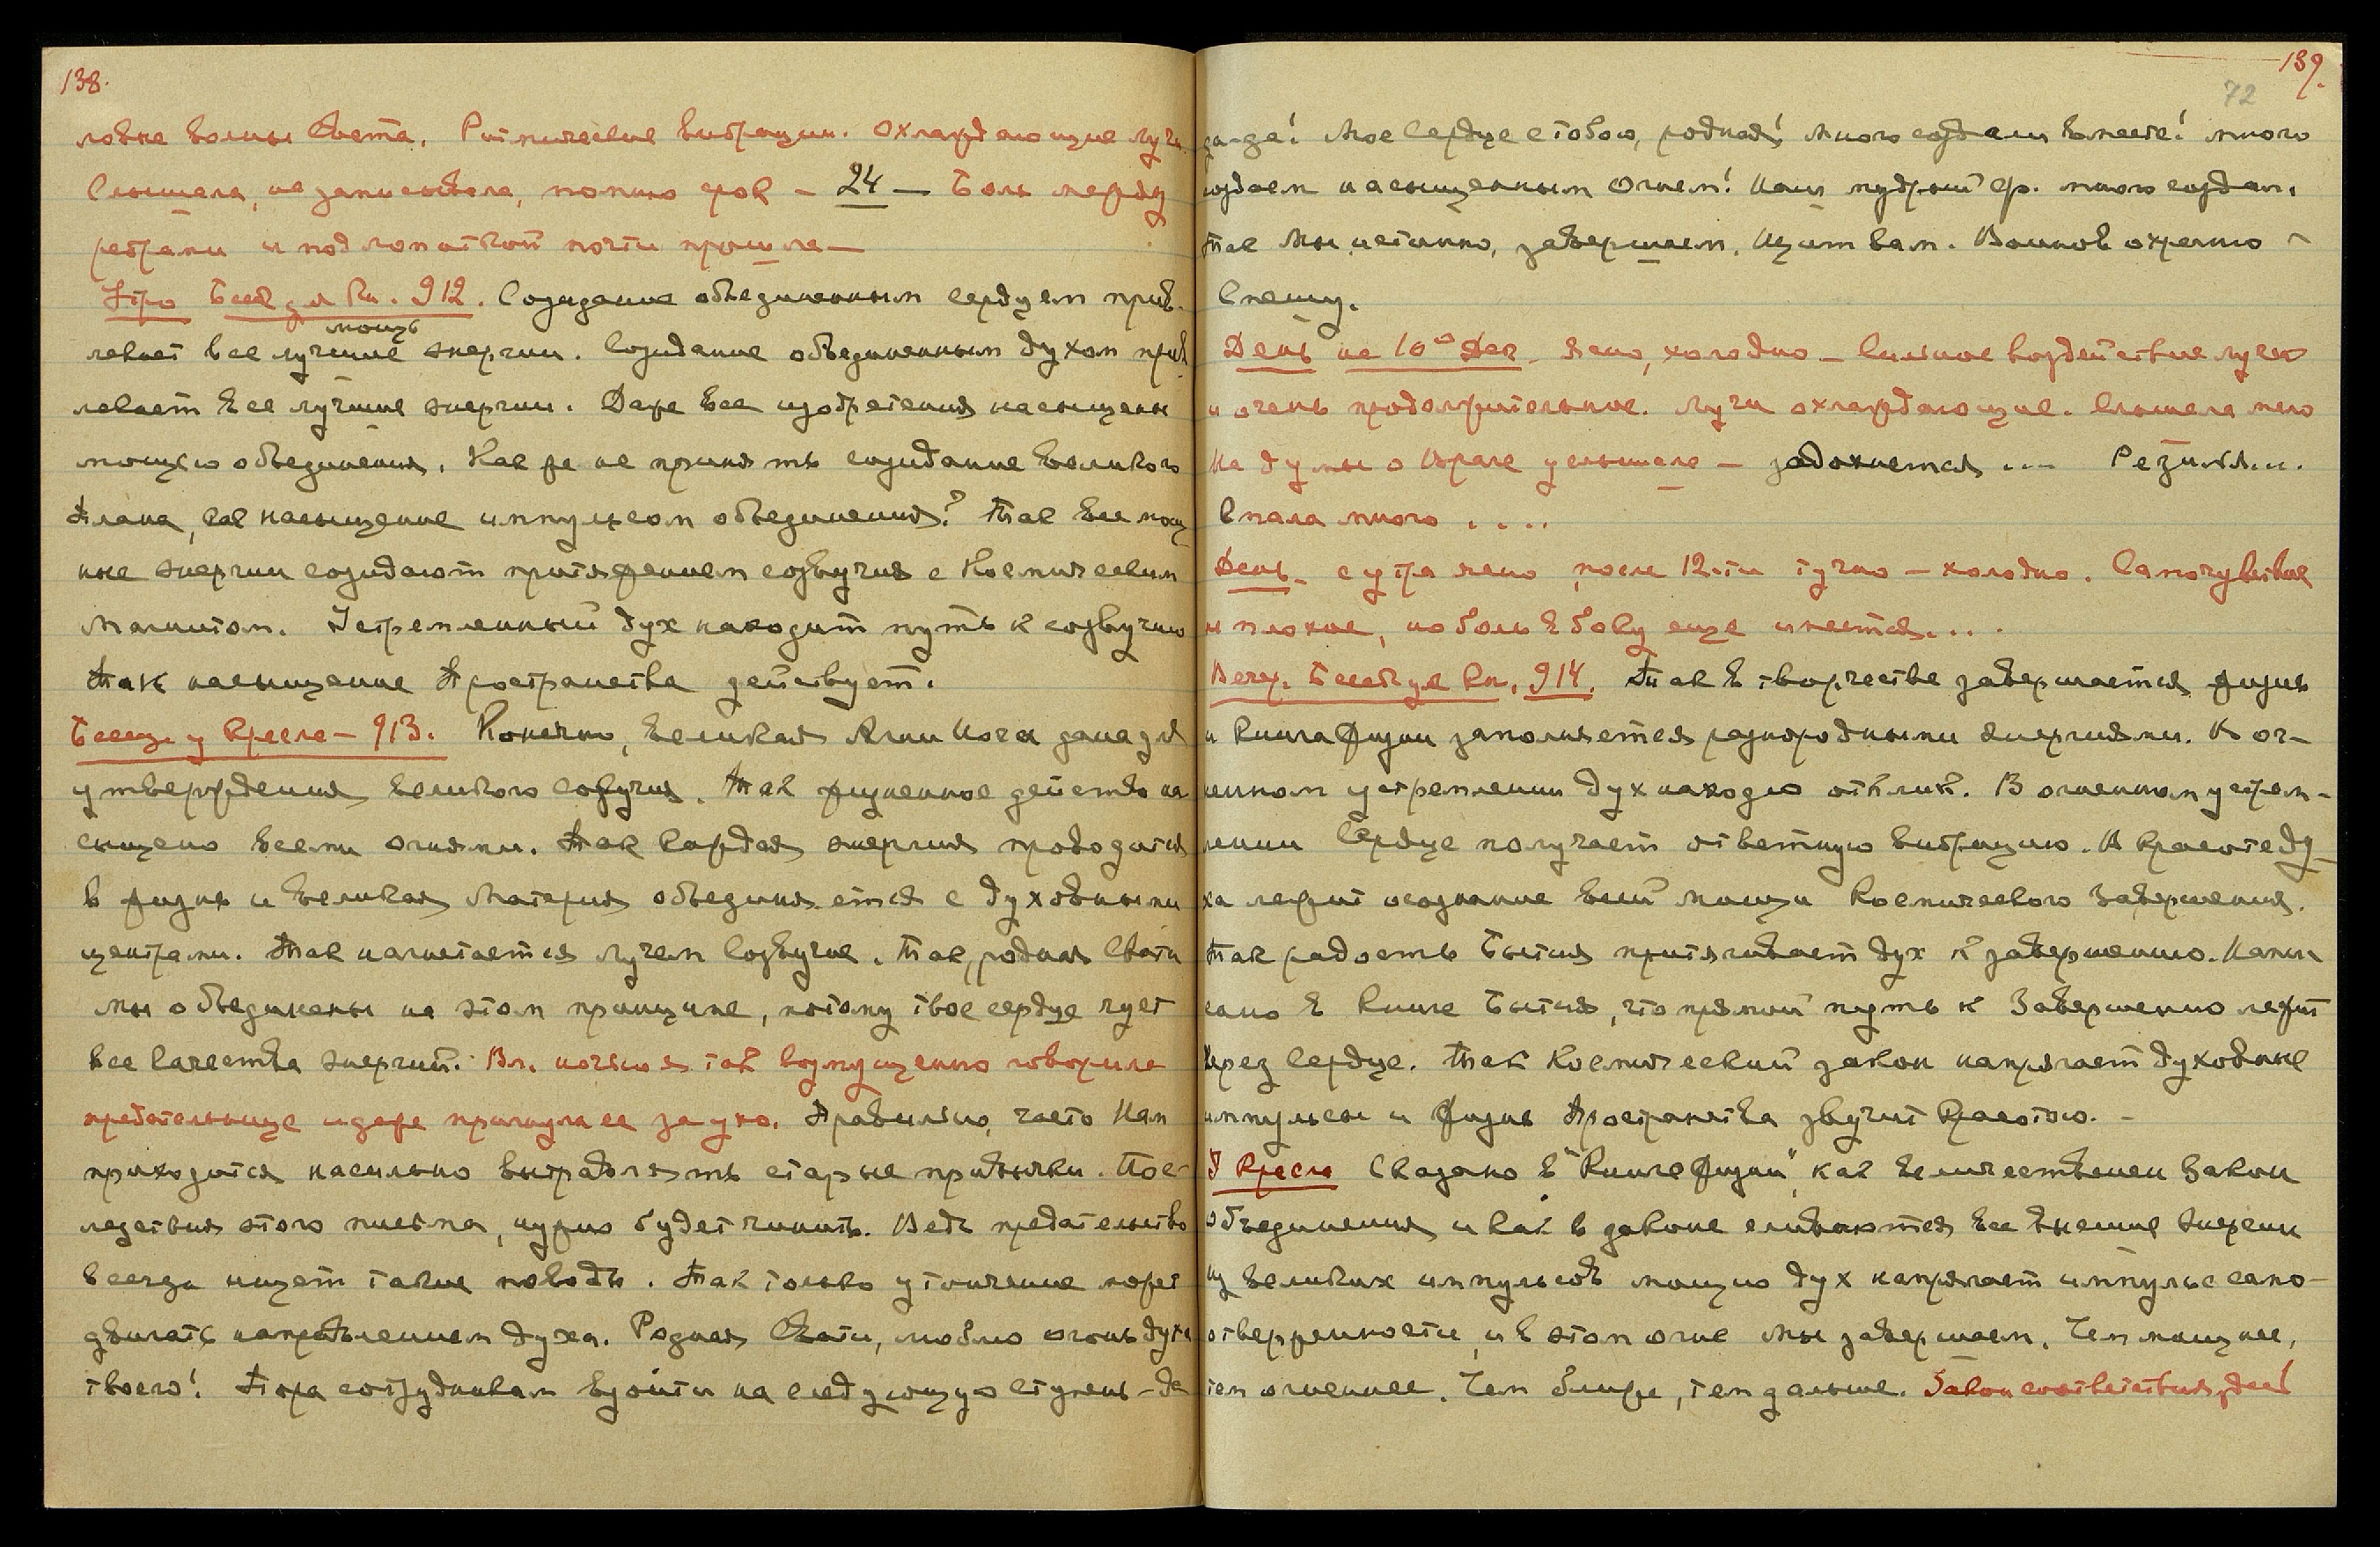 138.
ловые волны Света. Ритмические вибрации. Охлаждающие лучи.
Слышала, не записывала, помню срок — 24 — Боль между
ребрами и под лопаткой почти прошла —
Утро Бесед за Кн. 912. Созидание объединенным сердцем прив-
мощь
лекает все лучшие энергии. Созидание объединенным духом прив
лекает все лучшие энергии. Даже все изобретения насыщены
мощью объединения. Как же не принять созидание Великого
Плана, как насыщение импульсом объединения? Так все мощ
ные энергии созидают притяжением созвучия с Космическим
Магнитом. Устремленный дух находит путь к созвучию
Так насыщение Пространства действует.
Беседа у Кресла — 913. Конечно, Великая Агни Йога дана для
утверждения великого созвучия. Так жизненное действо на
сыщено всеми огнями. Так каждая энергия проводится
в жизнь и Великая Материя объединяется с духовными
центрами. Так нагнетается лучем Созвучие. Так, родная Свати
мы объединены на этом принципе, потому твое сердце чует
все качества энергий. Вл. ночью я так возмущенно говорила
предательнице и даже притянула ее за ухо. Правильно, часто Нам
приходится насильно вытравлять старые привычки. Пос-
ледствия этого письма, нужно будет чинить. Ведь предательство
всегда ищет такие поводы. Так только утончение может
двигать направлением духа. Родная Свати, люблю огонь духа
твоего! Пора сотрудникам взойти на следующую ступень — да
139.
72
да-да! Мое Сердце с тобою, родная! Много создали вместе! много
создаем насыщенным Огнем! Наш мудрый Ф. много создал.
Так Мы истинно, завершаем. Щит вам. Воинов охраню —
Спешу.
День на 10ое Дек — Ясно, холодно — Сильное воздействие лучей
и очень продолжительное. Лучи охлаждающие. Слышала мало
На думы о Враге услышала — задохнется ... Резиня...
Спала много ....
День — с утра ясно, после 12-ти тучно — холодно. Самочувствие
не плохое, но боль в боку еще имеется....
Вечер. Беседа у Кн. 914. Так в творчестве завершается жизнь
и Книга Жизни заполняется разнородными энергиями. В ог-
ненном устремлении дух находит отклик. В огненном устрем-
лении Сердце получает ответную вибрацию. В красоте ду-
ха лежит осознание всей мощи Космического Завершения.
Так радость Бытия притягивает дух к завершению. Напи
сано в Книге Бытия, что прямой путь к Завершению лежит
через Сердце. Так Космический закон напрягает духовные
импульсы и Жизнь Пространства звучит Красотою. —
У Кресла Сказано в "Книге Жизни", как величественен Закон
Объединения и как в законе сливаются все высшие энергии
из великих импульсов. мощно дух напрягает импульс само-
отверженности, и в этом огне мы завершаем. Чем мощнее,
тем огненнее. Чем ближе, тем дальше. Закон соответствия, да!